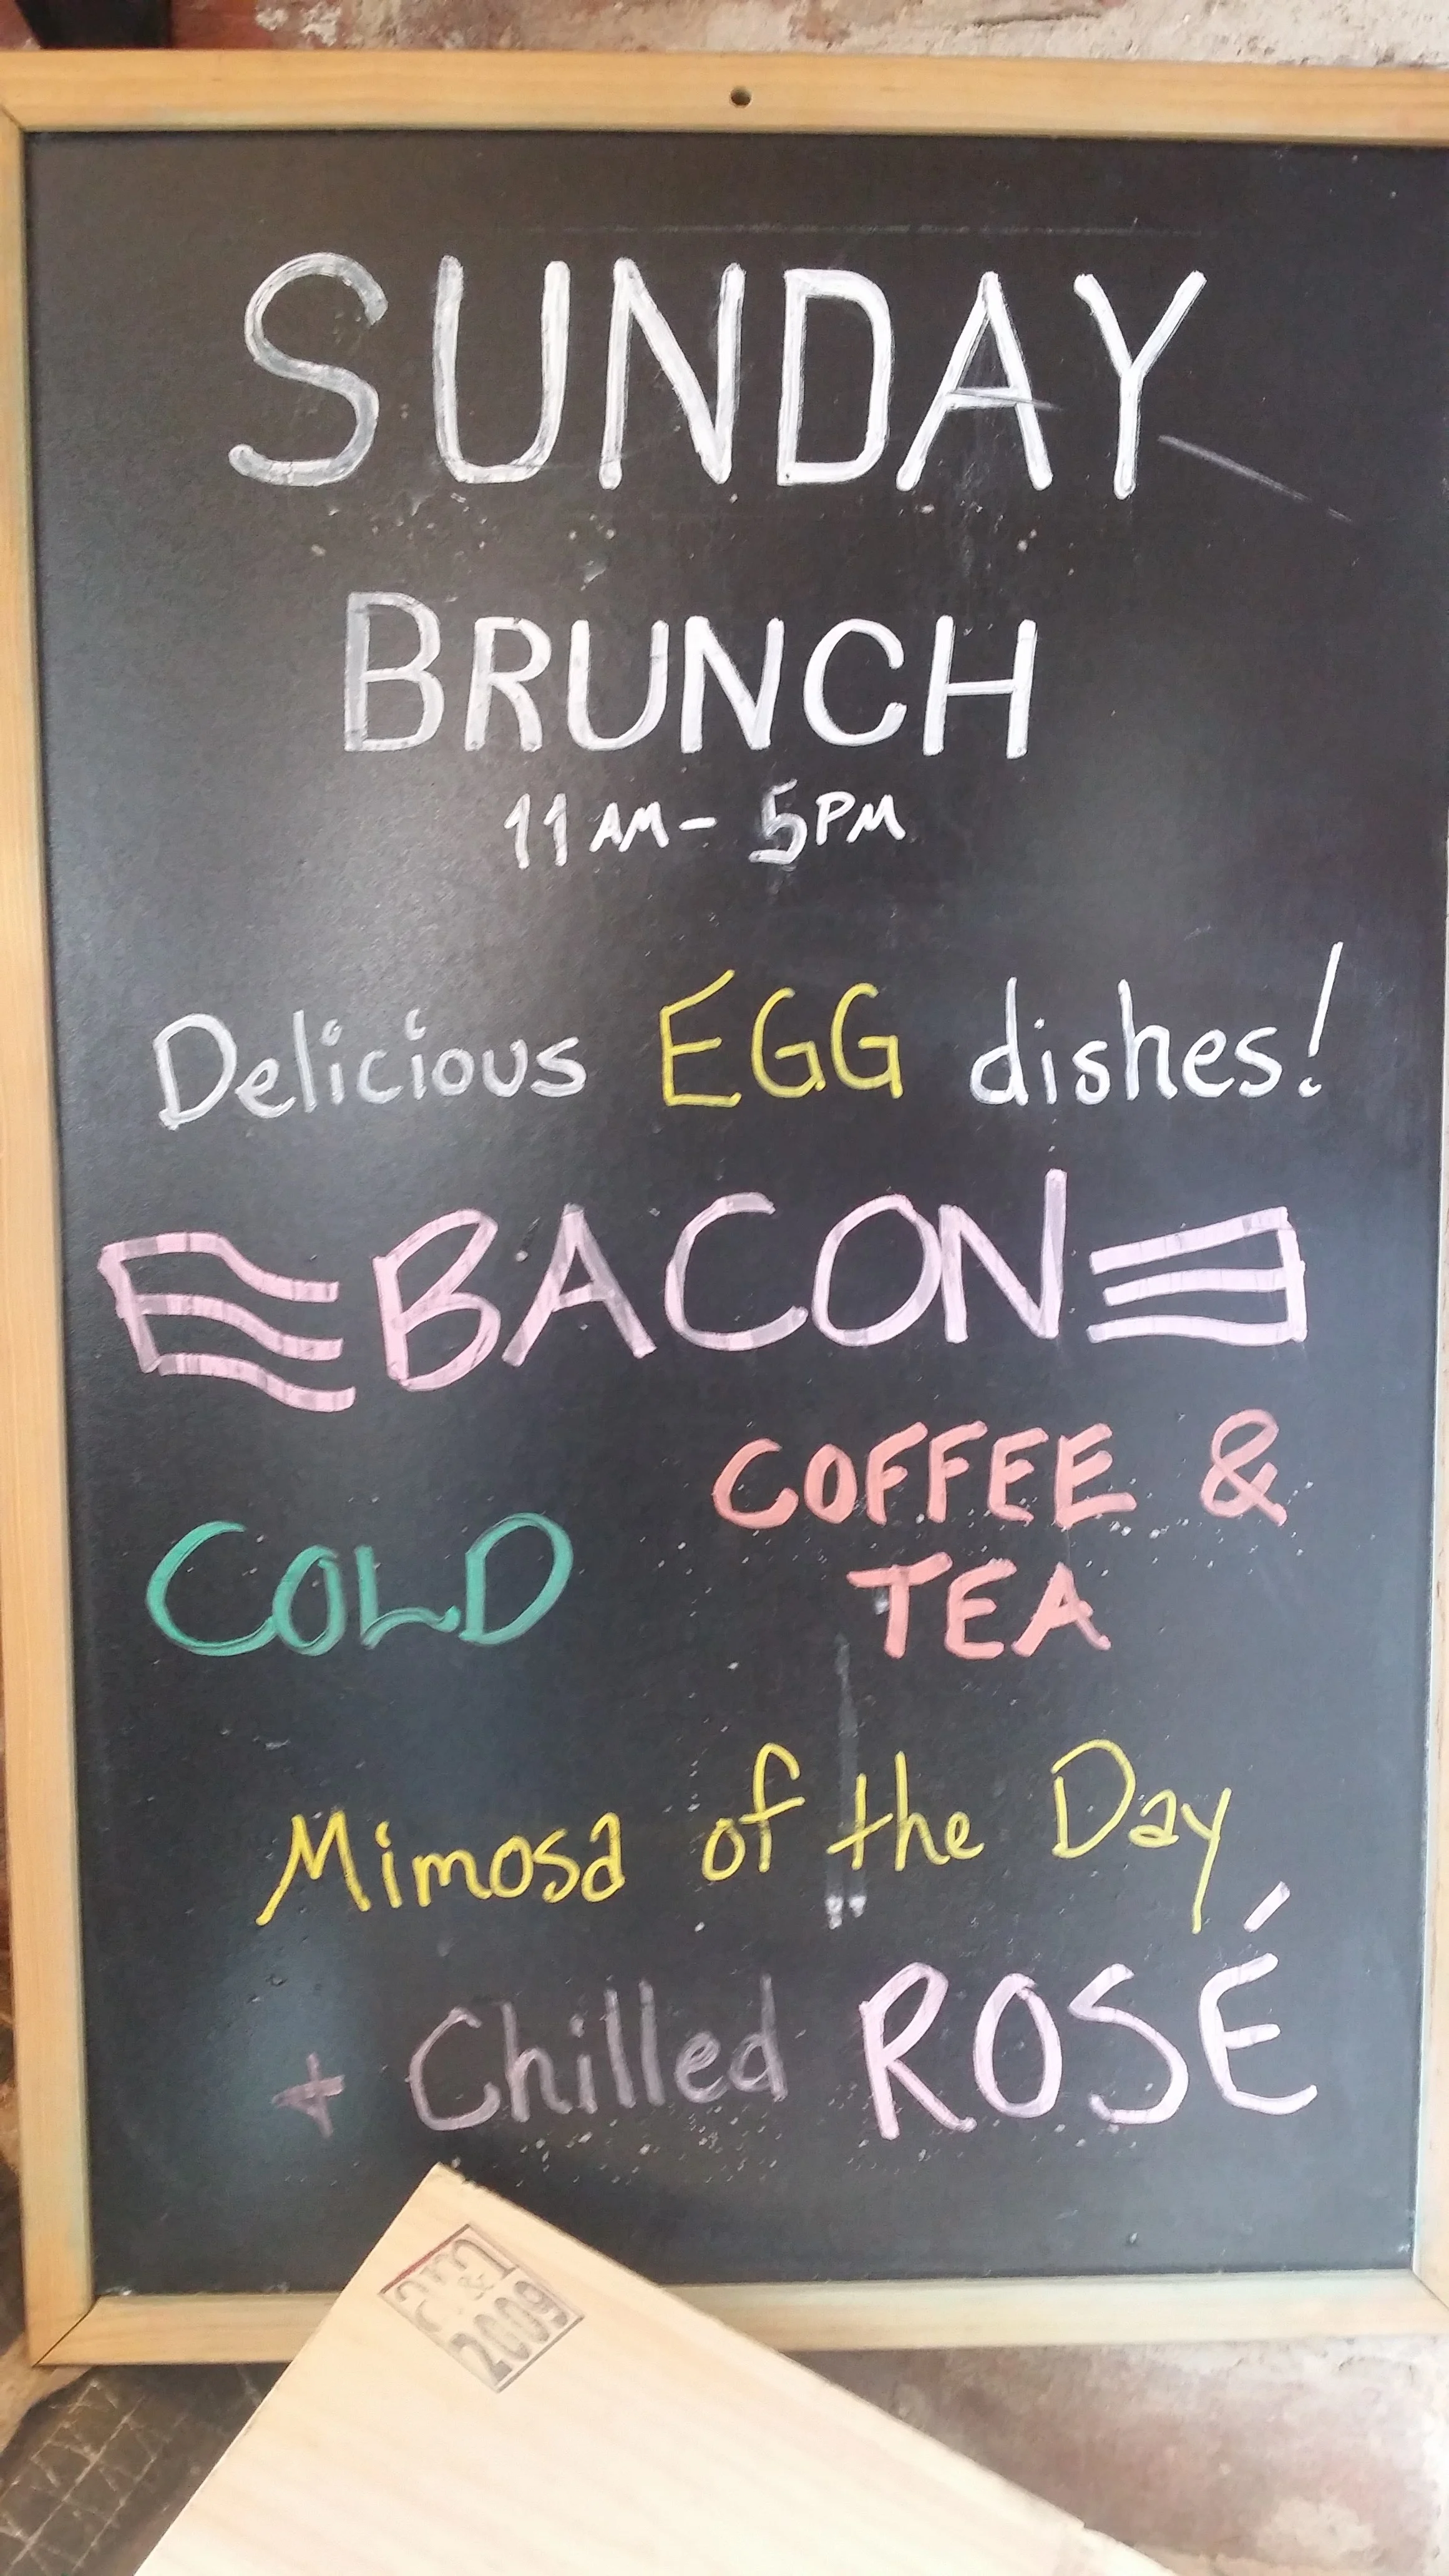 SUNDAY
BRUNCH
11AM - 5PM
Delicious EGG dishes!
BACON
COLD COFFEE &
TEA
Mimosa of the Day
+ Chilled ROSÉ
&
2009